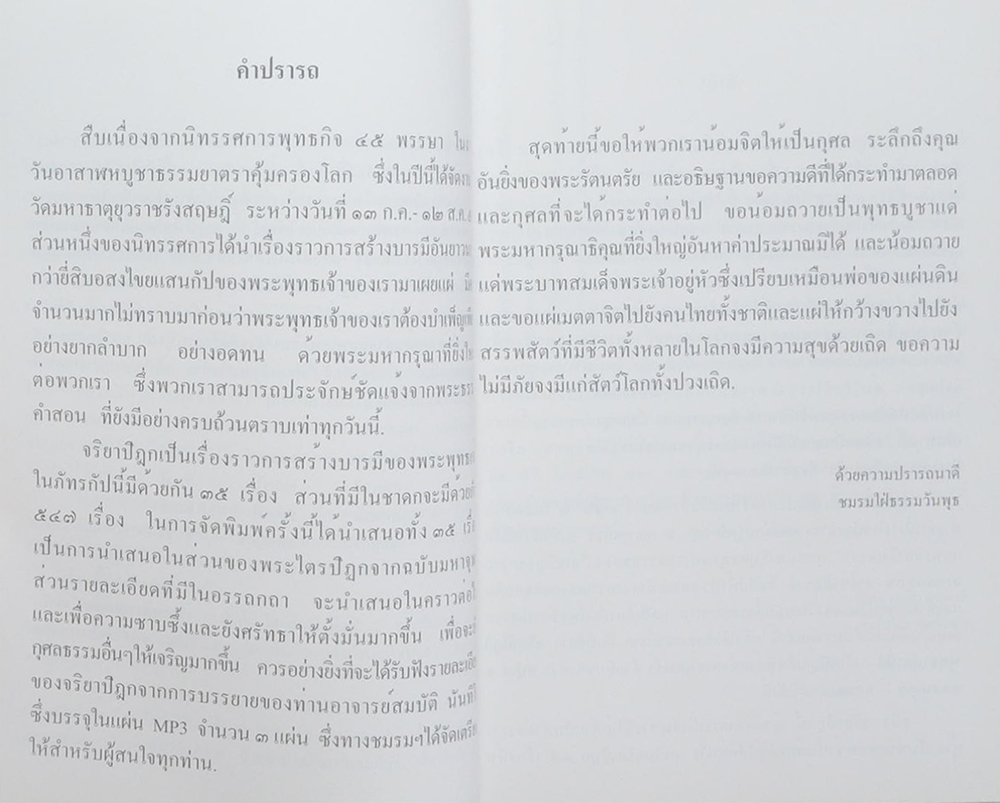 คำปรารถ
สืบเนื่องจากนิทรรศการพุทธกิจ ๔๕ พรรษา
วันอาสาฬหบูชาธรรมยาตราคุ้มครองโลก ซึ่งในปีนี้ได้จัด
วัดมหาธาตุยุวราชรังสฤษฎิ์ ระหว่างวันที่ ๑๓ ก.ค.- ๑๒ ส.ค.
ส่วนหนึ่งของนิทรรศการได้นำเรื่องราวการสร้างบารมีอัน
กว่ายี่สิบอสงไขยแสนกัปของพระพุทธเจ้าของเรามาเผยแผ่
จำนวนมากไม่ทราบมาก่อนว่าพระพุทธเจ้าของเราต้องบำเพ็ญ
อย่างยากลำบาก อย่างอดทน ด้วยพระมหากรุณาที่ยิ่ง
ต่อพวกเรา ซึ่งพวกเราสามารถประจักษ์ชัดแจ้งจาก
คำสอน ที่ยังมีอย่างครบถ้วนตราบเท่าทุกวันนี้.
จริยาปิฎกเป็นเรื่องราวการสร้างบารมีของ
ในภัทรกัปนี้มีด้วยกัน ๓๕ เรื่อง ส่วนที่มีในชาดกจะมี
๕๔๗ เรื่อง ในการจัดพิมพ์ครั้งนี้ได้นำเสนอทั้ง ๓๕
เป็นการนำเสนอในส่วนของพระไตรปิฎกจากฉบับ
ส่วนรายละเอียดที่มีในอรรถกถา จะนำเสนอในคราว
และเพื่อความซาบซึ้งและยังศรัทธาให้ตั้งมั่นมากขึ้น
กุศลธรรมอื่นๆให้เจริญมากขึ้น ควรอย่างยิ่งที่จะได้รับฟัง
ของจริยาปิฎกจากการบรรยายของท่านอาจารย์สมบัติ
ซึ่งบรรจุในแผ่น MP3 จำนวน ๓ แผ่น ซึ่งทางชมรมฯได้จัด
ให้สำหรับผู้สนใจทุกท่าน.
สุดท้ายนี้ขอให้พวกเราน้อมจิตให้เป็นกุศล ระลึกถึงคุณ
อันยิ่งของพระรัตนตรัย และอธิษฐานขอความดีที่ได้กระทำมาตลอด
และกุศลที่จะได้กระทำต่อไป ขอน้อมถวายเป็นพุทธบูชาแด่
พระมหากรุณาธิคุณที่ยิ่งใหญ่อันหาค่าประมาณมิได้ และน้อมถวาย
แด่พระบาทสมเด็จพระเจ้าอยู่หัวซึ่งเปรียบเหมือนพ่อของแผ่นดิน
และขอแผ่เมตตาจิตไปยังคนไทยทั้งชาติและแผ่ให้กว้างขวางไปยัง
สรรพสัตว์ที่มีชีวิตทั้งหลายในโลกจงมีความสุขด้วยเถิด ขอความ
ไม่มีภัยจงมีแก่สัตว์โลกทั้งปวงเถิด.
ด้วยความปรารถนาดี
ชมรมใฝ่ธรรมวันพุธ